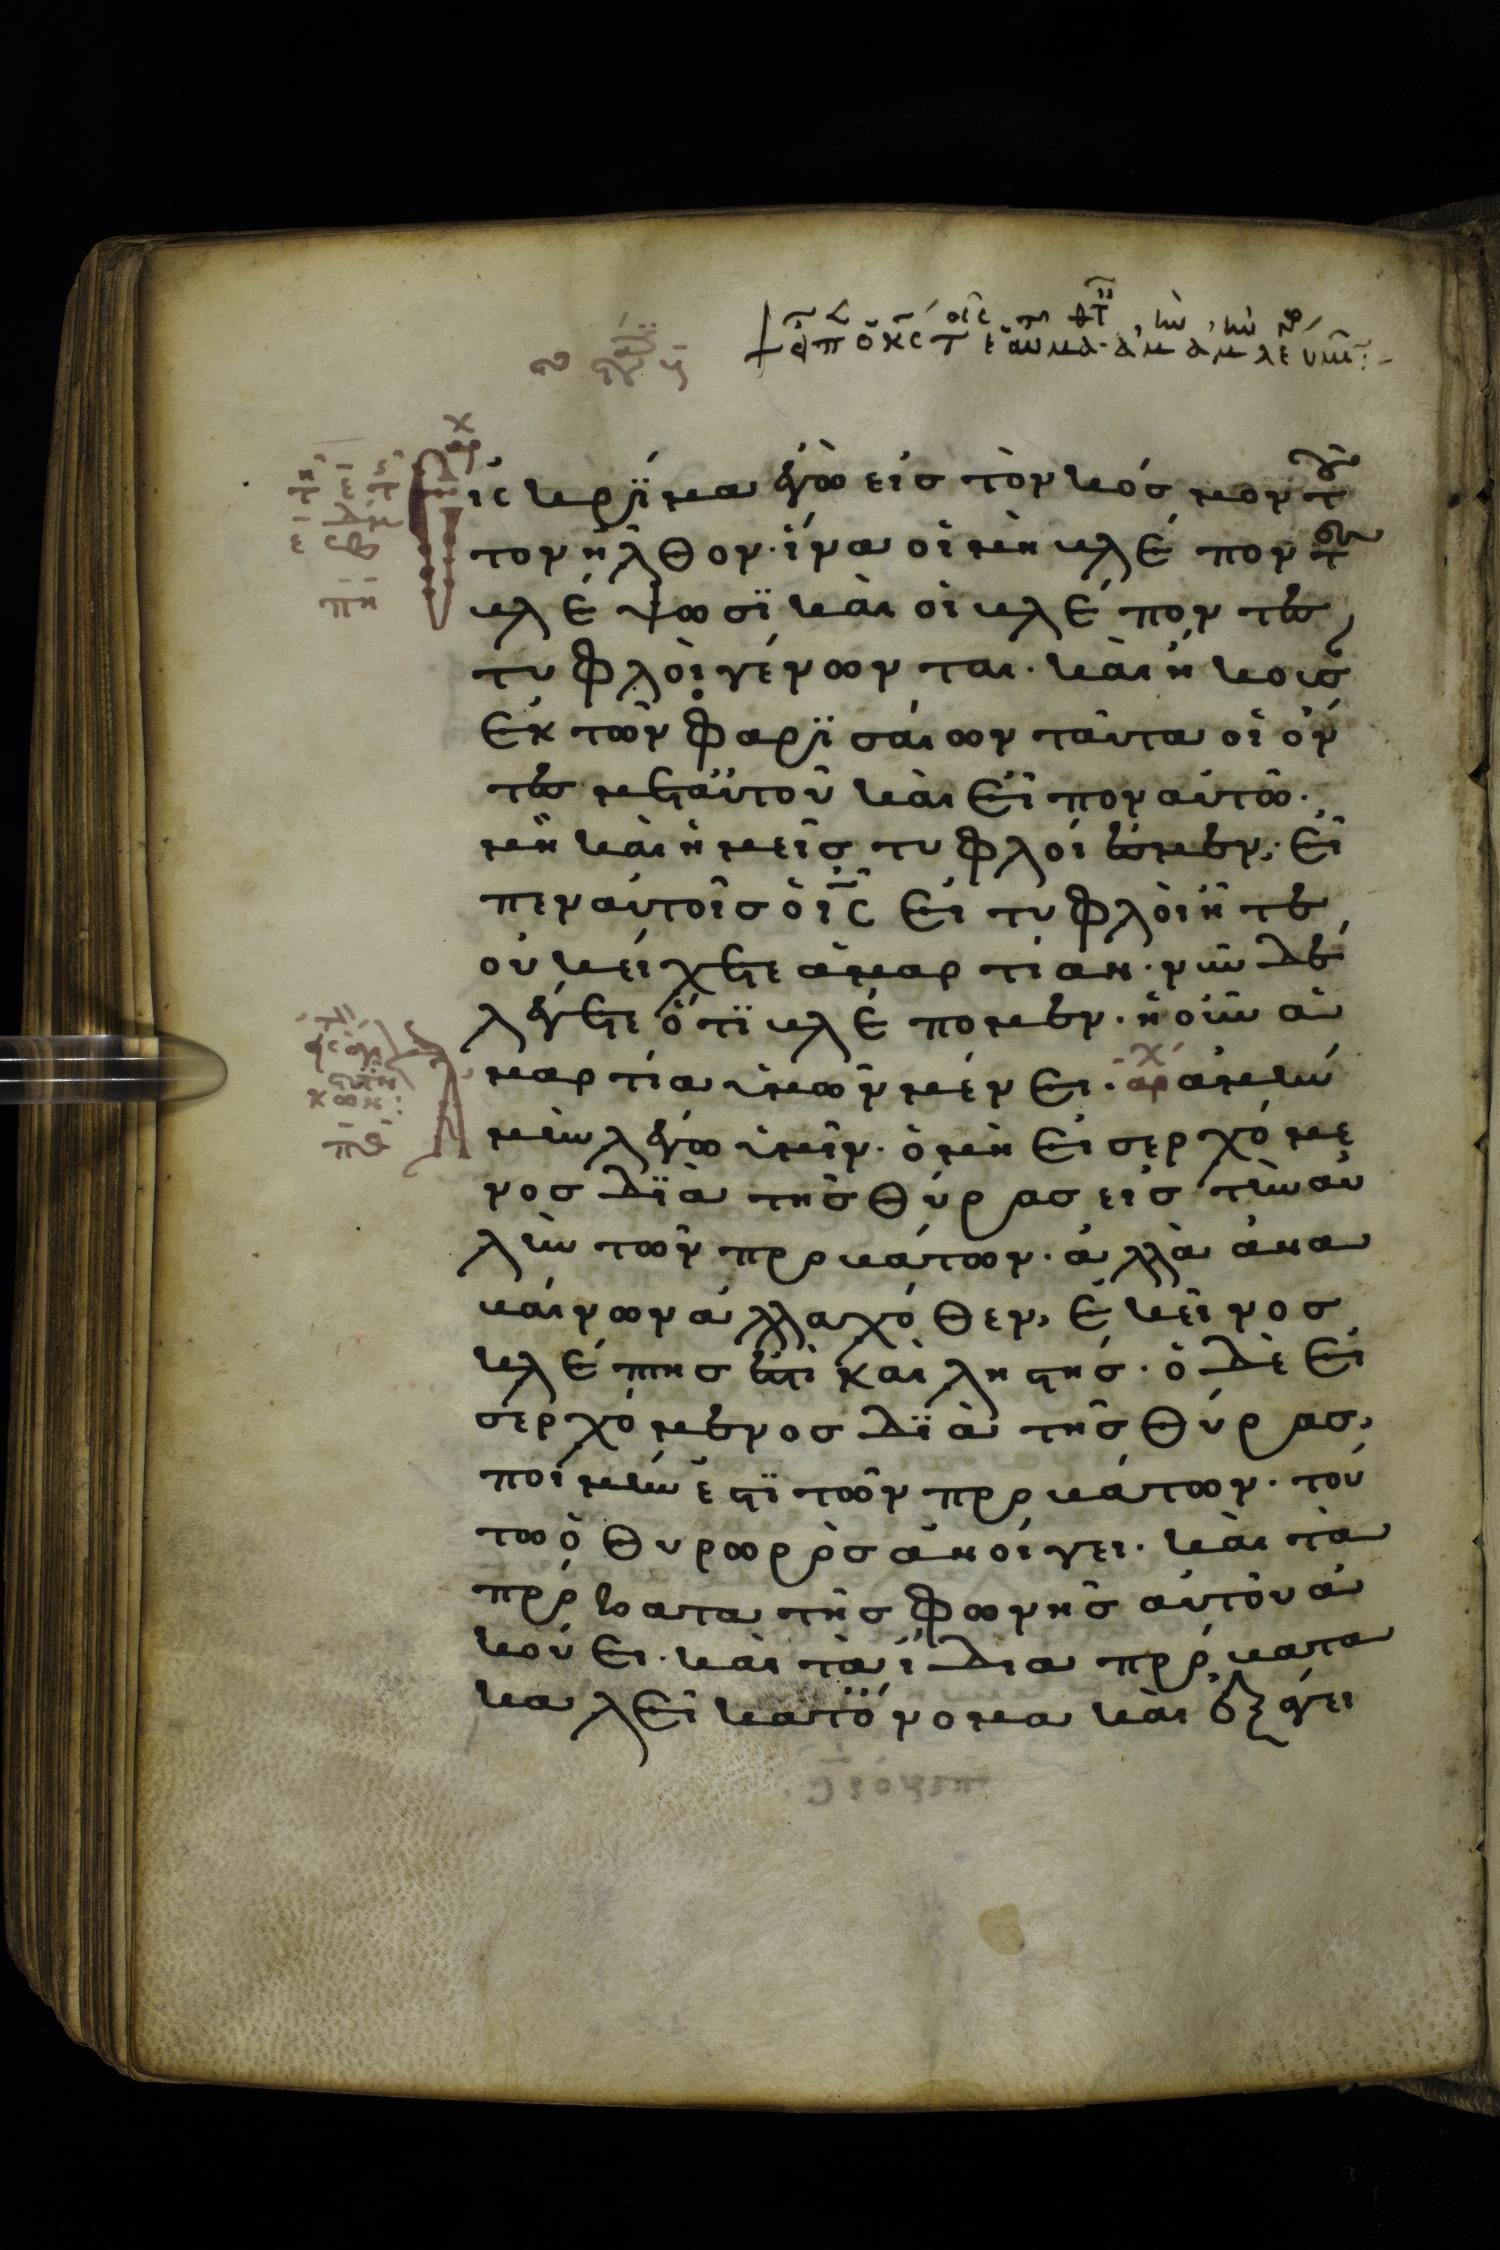 εἰς κρῖμα ἐγὼ εἰς τὸν κόσμον τοῦ
τον ἦλθον· ἵνα οἱ μὴ βλέποντες
βλέπωσι καὶ οἱ βλέποντες
τυφλοὶ γένωνται· καὶ ἤκουσ
ἐκ τῶν φαρισαίων ταῦτα οἱ ὄν
τες μετ αὐτοῦ καὶ εἶπον αὐτῶ·
μὴ καὶ ἡμεῖς τυφλοί ἐσμεν· εἶ
πεν αὐτοῖς ὁ ις εἰ τυφλοὶ ἦτε
οὐκ εἴχετε ἁμαρτίαν· νῦν δὲ
λέγετε ὅτι βλέπομεν· ἡ οὖν ἁ
μαρτία ὑμῶν μένει· ἀμὴν
ἀμὴν λέγω ὑμῖν· ὁ μὴ εἰσερχόμε
νος διὰ τῆς θύρας εἰς τὴν αὐ
λὴν τῶν προβάτων· ἀλλὰ ἀνα
βαίνων ἀλλαχόθεν, ἐκεῖνος
κλέπτης ἐστὶ καὶ ληστής· ὁ δὲ εἰ
σερχόμενος διὰ τῆς θύρας,
ποιμήν ἐστι τῶν προβάτων· τού
τω ὁ θυρωρὸς ἀνοίγει· καὶ τὰ
πρόβατα τῆς φωνῆς αὐτοῦ ἀ
κούει· καὶ τὰ ἴδια πρόβατα
καλεῖ κατ ὄνομα καὶ ἐξάγει